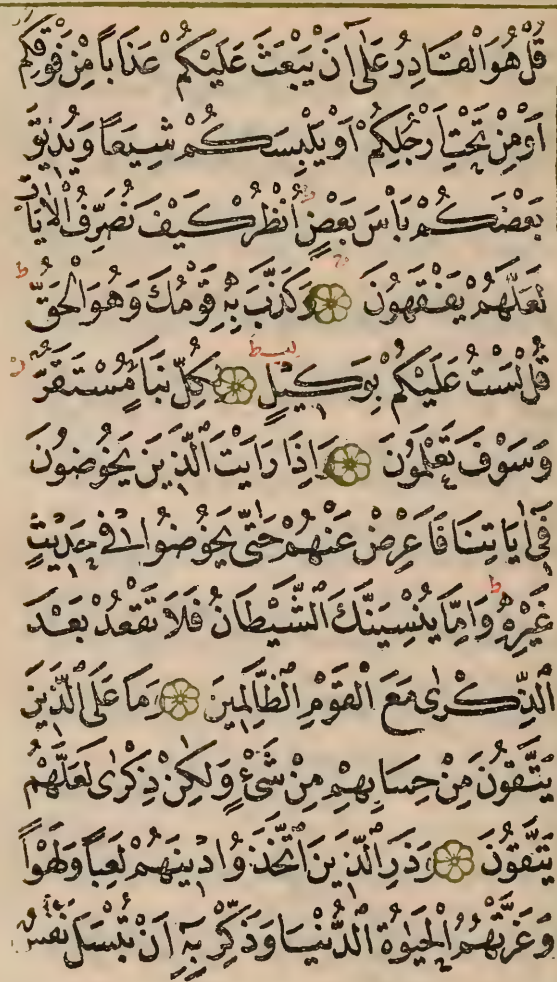 قُلْ هُوَ الْقَادِرُ عَلٰٓى اَنْ يَبْعَثَ عَلَيْكُمْ عَذَابًا مِنْ فَوْقِكُمْ
اَوْ مِنْ تَحْتِ اَرْجُلِكُمْ اَوْ يَلْبِسَكُمْ شِيَعًا وَيُذِيقَ
بَعْضَكُمْ بَأْسَ بَعْضٍ ط اُنْظُرْ كَيْفَ نُصَرِّفُ الْاٰيَاتِ
لَعَلَّهُمْ يَفْقَهُونَ وَكَذَّبَ بِهٖ قَوْمُكَ وَهُوَ الْحَقُّ ط
قُلْ لَسْتُ عَلَيْكُمْ بِوَكِيلٍ ط لِكُلِّ نَبَأٍ مُسْتَقَرٌّ
وَسَوْفَ تَعْلَمُونَ وَاِذَا رَاَيْتَ الَّذِينَ يَخُوضُونَ
فِٓى اٰيَاتِنَا فَاَعْرِضْ عَنْهُمْ حَتّٰى يَخُوضُوا فِى حَدِيثٍ
غَيْرِهٖ ط وَاِمَّا يُنْسِيَنَّكَ الشَّيْطَانُ فَلَا تَقْعُدْ بَعْدَ
الذِّكْرٰى مَعَ الْقَوْمِ الظَّالِمِينَ وَمَا عَلَى الَّذِينَ
يَتَّقُونَ مِنْ حِسَابِهِمْ مِنْ شَىْءٍ وَلٰكِنْ ذِكْرٰى لَعَلَّهُمْ
يَتَّقُونَ وَذَرِ الَّذِينَ اتَّخَذُوا دِينَهُمْ لَعِبًا وَلَهْوًا
وَغَرَّتْهُمُ الْحَيٰوةُ الدُّنْيَا وَذَكِّرْ بِهٖٓ اَنْ تُبْسَلَ نَفْسٌ